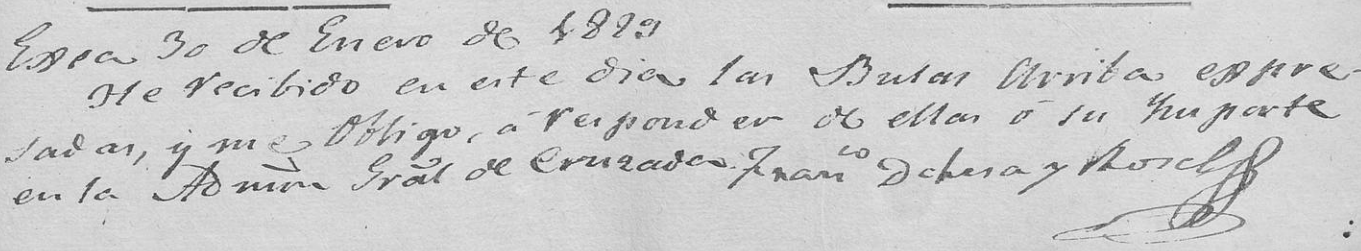 Exea 30 de Enero de 1829
He recibido en este dia las Bulas Arriba expre-
sadas, y me obligo, á responder de ellas ó su Ymporte
en la Admon Gral de Cruzada. Franco Dehesa y Rosel